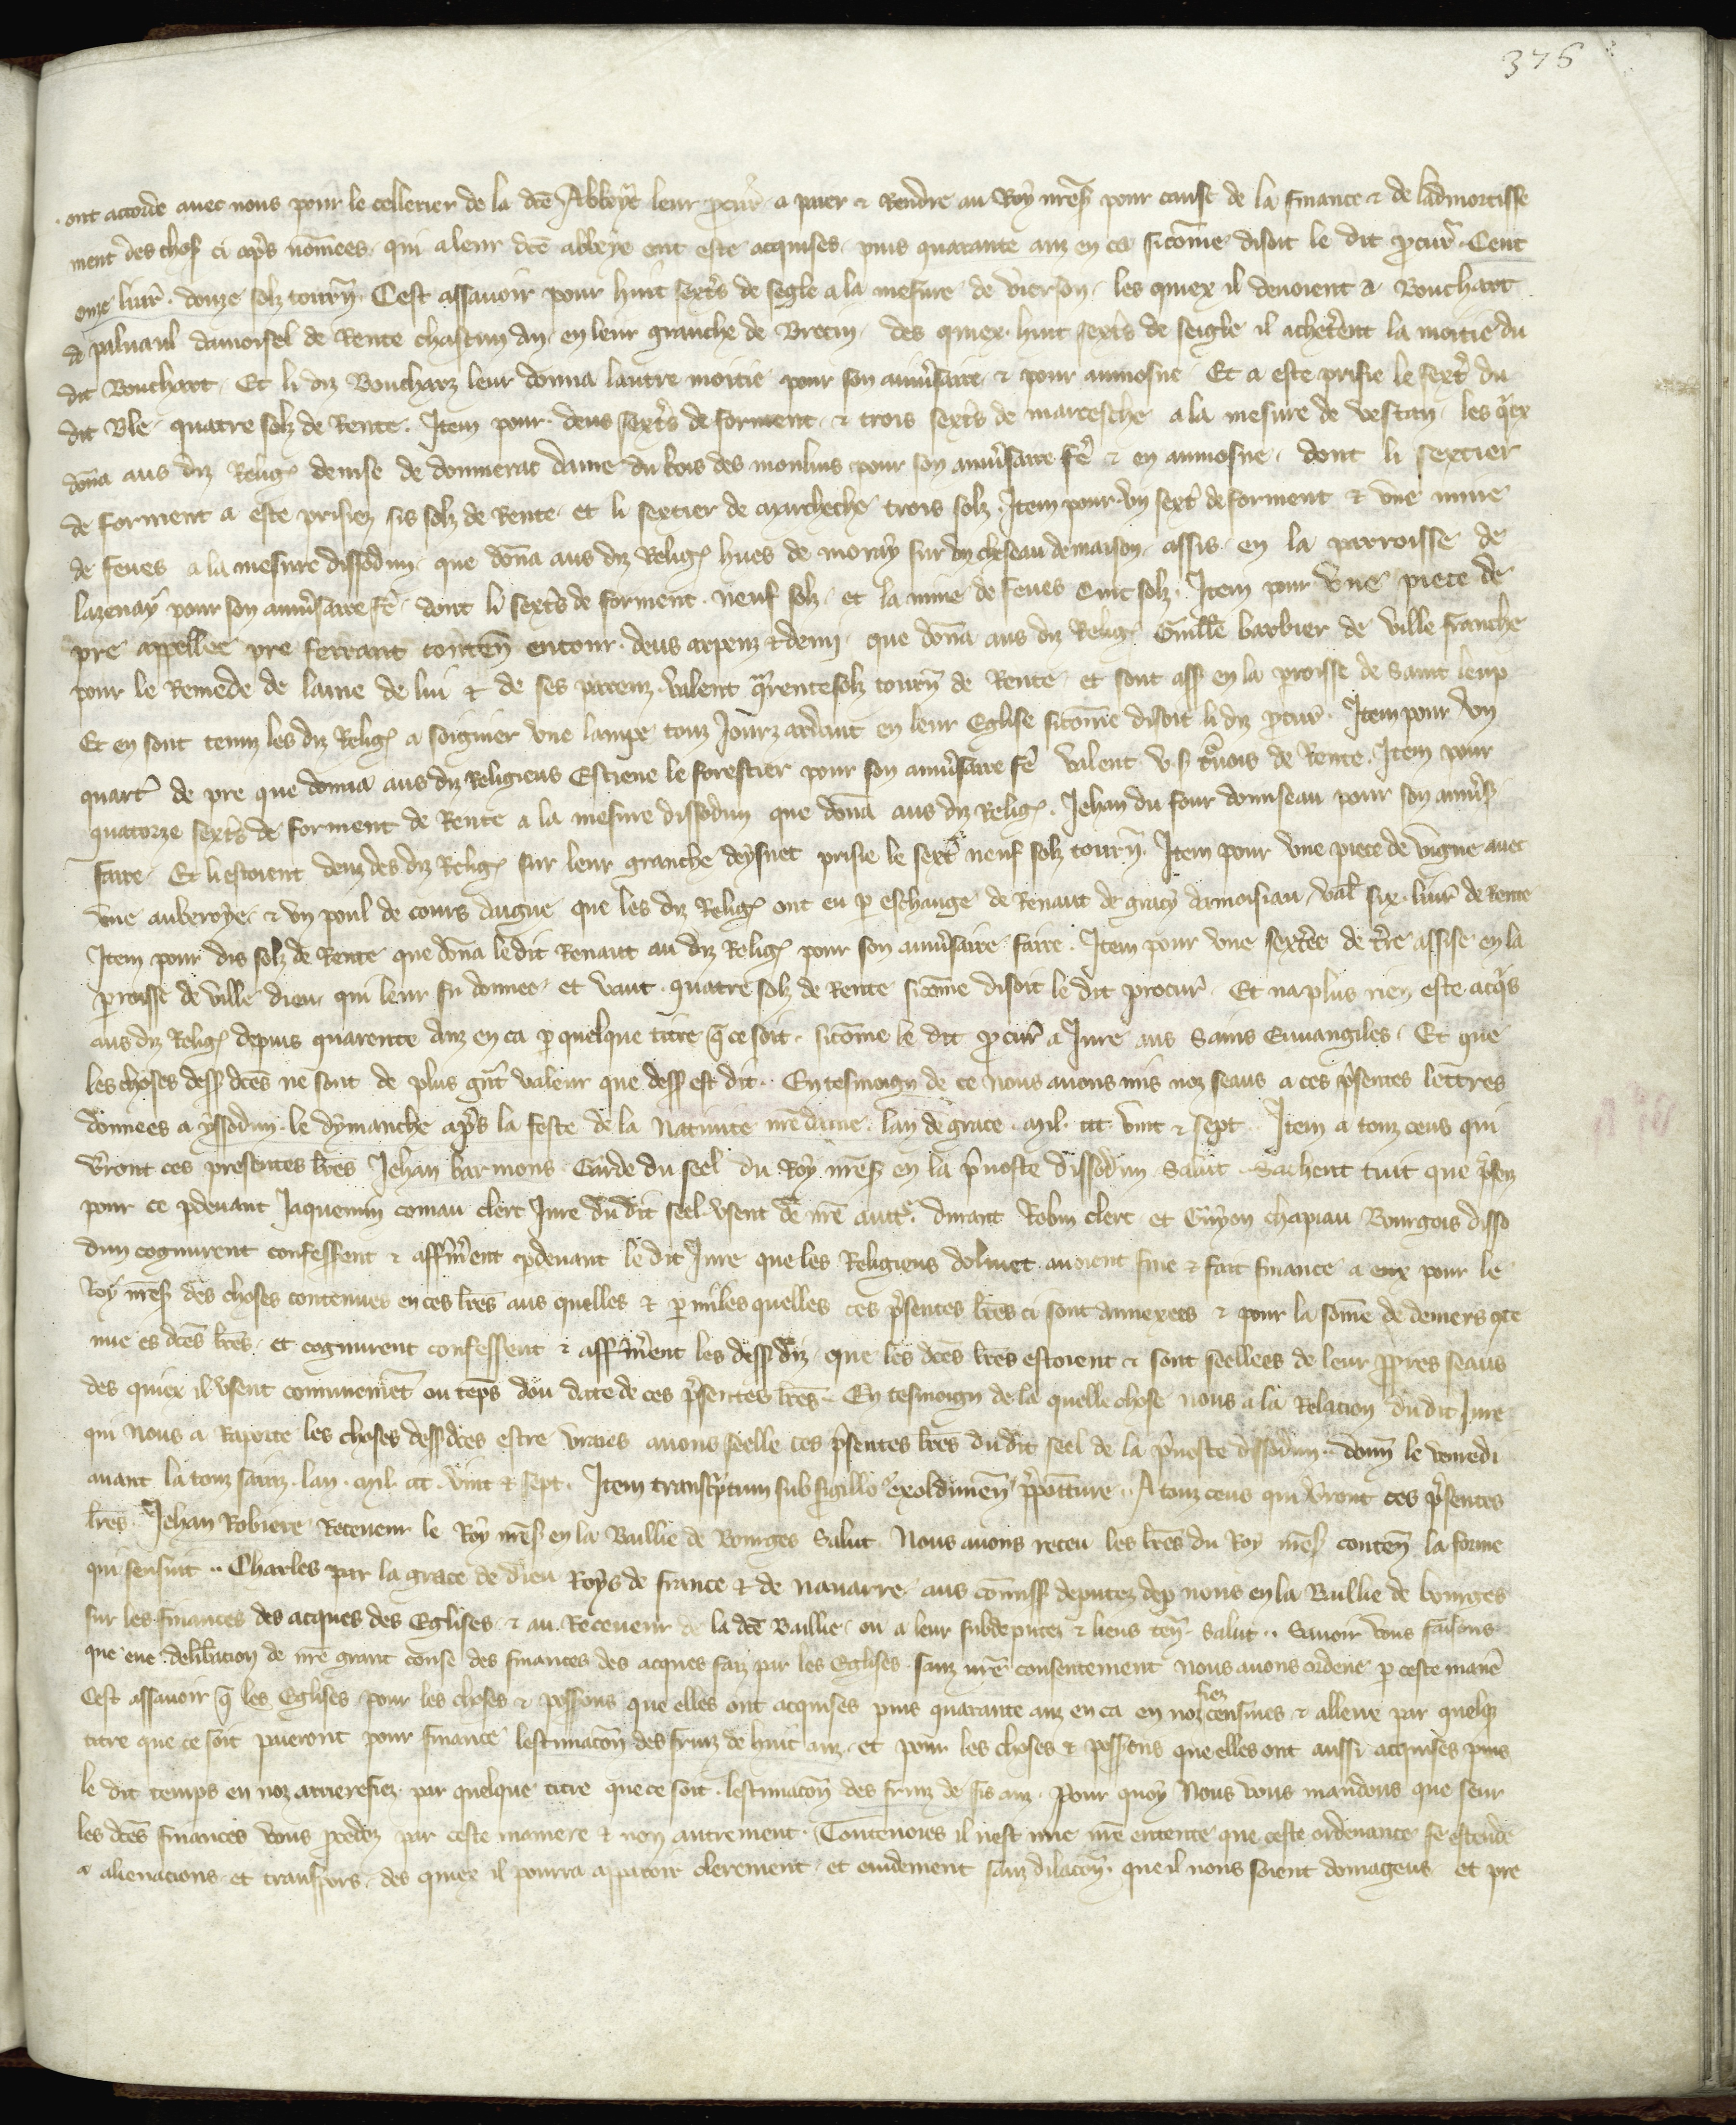 376
ont accorde avec nous pour le cellerier de la dce Abbeye leur pcur a paier & Rendre au Roy nres pour cause de la finance & de ladmortisse
ment des chos ci apres nommees qui a leur dce abbeye ont este acquises puis quarante anz en ca sicome disoit le dit pcur Cent
onze livr. douze solz tourn. Cest assavoir pour huit sexts de segle a la mesure de vierson les quiex il devoient a Bouchart
de damoisel de Rente chascun an en leur granche de Brecin des quiex huit sexts de seigle il achetent la moitie du
dit Bouchart. Et li diz Boucharz leur donna lautre moitie pour son anivsaire & pour aumosne Et a este prisie le sext du
dit Ble quatre solz de Rente. Item pour deus sexts de forment & trois sexts de marcesche a la mesure de vestan les qex
dona aus diz Relig denise de dame du bois des moulins pour son anivsaire fe & en aumosne dont li sextier
de forment a este prisiez sis solz de Rente et li sextier de marcheche trois solz. Item pour vn sext de forment & vne mine
de feves a la mesure dissodun que dona aus diz Relig hues de moray sur vn cheseau de maison assis en la parroisse de
lazenay pour son anivsaire fe dont li sexts de forment neuf solz et la mine de feves cinc solz. Item pour vne piece de
pre appellee pre ferrant conten entour deus arpenz & demi que dona aus diz Relig Guille barbier de ville franche
pour le Remede de lame de lui & de ses parenz valent qrente solz tourn de Rente et sont ass en la proisse de saint leup
Et en sont tenuz les diz Relig a soignier vne lampe touz Jourz ardant en leur Eglise sicome disoit li diz pcur. Item pour vn
quart de pre que donna aus diz Religieus Estiene le forestier pour son anivsaire fe valent v s tnois de Rente. Item pour
quatorze sexts de forment de Rente a la mesure dissodun que dona aus diz Relig. Jehan du four donnseau pour son anivs
faire Et li estoient deuz des diz Relig sur leur granche deysnet prisie le sext neuf solz tourn. Item pour vne piece de vigne avec
vne auberoye & vn poul de cours dague que les diz Relig ont eu p eschange de Renaut de gracy damoisiau val six livr de Rente
Item pour dis solz de Rente que dona le dit Renaut au diz Relig pour son anivsaire faire. Item pour vne sextree de tre assise en la
proisse de ville dieu qui leur fu donnee et vaut quatre solz de Rente sicome disoit le dit procur Et na plus rien este acqs
aus diz Relig depuis quarente anz en ca p quelque titre q ce soit sicome le dit pcur a Jure aus Sains Euuangiles. Et que
les choses dess dces ne sont de plus gnt valeur que dess est dit. En tesmoign de ce nous avons mis noz seaus a ces psentes lettres
donnees a yssodun le dymanche apres la feste de la Nativite nre dame lan de grace mil. ccc vint & sept. Item a touz ceus qui
vront ces presentes lres Jehan barmons Garde du seel du Roy nres en la pvoste dissodun Salut Sachent tuit que psenz
pour ce pdevant Jaquemin comau clerc Jure du dit seel vsent de nre auct. durant Robin clerc et Guyon chapiau Bourgois disso
dun cognurent confessent & affirment pdevant le dit Jure que les Religieus dolivet avoient fine & fait finance a eux pour le
Roy nres des choses contenues en ces lres aus quelles & p mi les quelles ces psentes lres ci sont annexees & pour la some de deniers cte
nue es dces lres et cognurent confessent & affirment les dess diz que les dces lres estoient & sont seellees de leur ppres seaus
des quiex il vsent communemet ou teps dou date de ces psentes lres. En tesmoign de la quelle chose nous a la Relacion du dit Jure
qui Nous a Raporte les choses dess dces estre vraies avons seelle ces psentes lres du dit seel de la pvoste dissodun. donn le venredi
avant la touz sainz. lan. mil. ccc. vint & sept. Item transcptum sub sigillo exoldunen ppoiture. A touz ceus qui vront ces psentes
lres Jehan Robiere Receveur le Roy nres en la Baillie de Bourges Salut Nous avons receu les lres du Roy nres conten la forme
qui sensuit.. Charles par la grace de dieu Roys de france & de navarre aus comiss deputez dep nous en la Baillie de bourges
sur les finances des acques des Eglises & au Receveur de la dce Baillie ou a leur subdeputez & lieus ten Salut.. Savoir vous faisons
que eue delibacion de nre grant conse des finances des acques faiz par les Eglises sanz nre consentement nous avons ordene p ceste mane
Cest assavoir q les Eglises pour les choses & possons que elles ont acquises puis quarante anz en ca en noz fiez censives & alleue par quelq
titre que ce soit paieront pour finance lestimacon des fruiz de huit anz et pour les choses & possons que elles ont aussi acquises puis
le dit temps en noz arrierefiez par quelque titre que ce soit lestimacon des fruiz de sis anz. Pour quoy Nous vous mandons que seur
les dces finances vous pcedez par ceste maniere & non autrement. Toutevoies il nest mie nre entente que ceste ordenance se estende
a alienacions et transpors des quiex il pourra apparoir clerement et evidement sanz dilacon que il nous soient domageus et pre